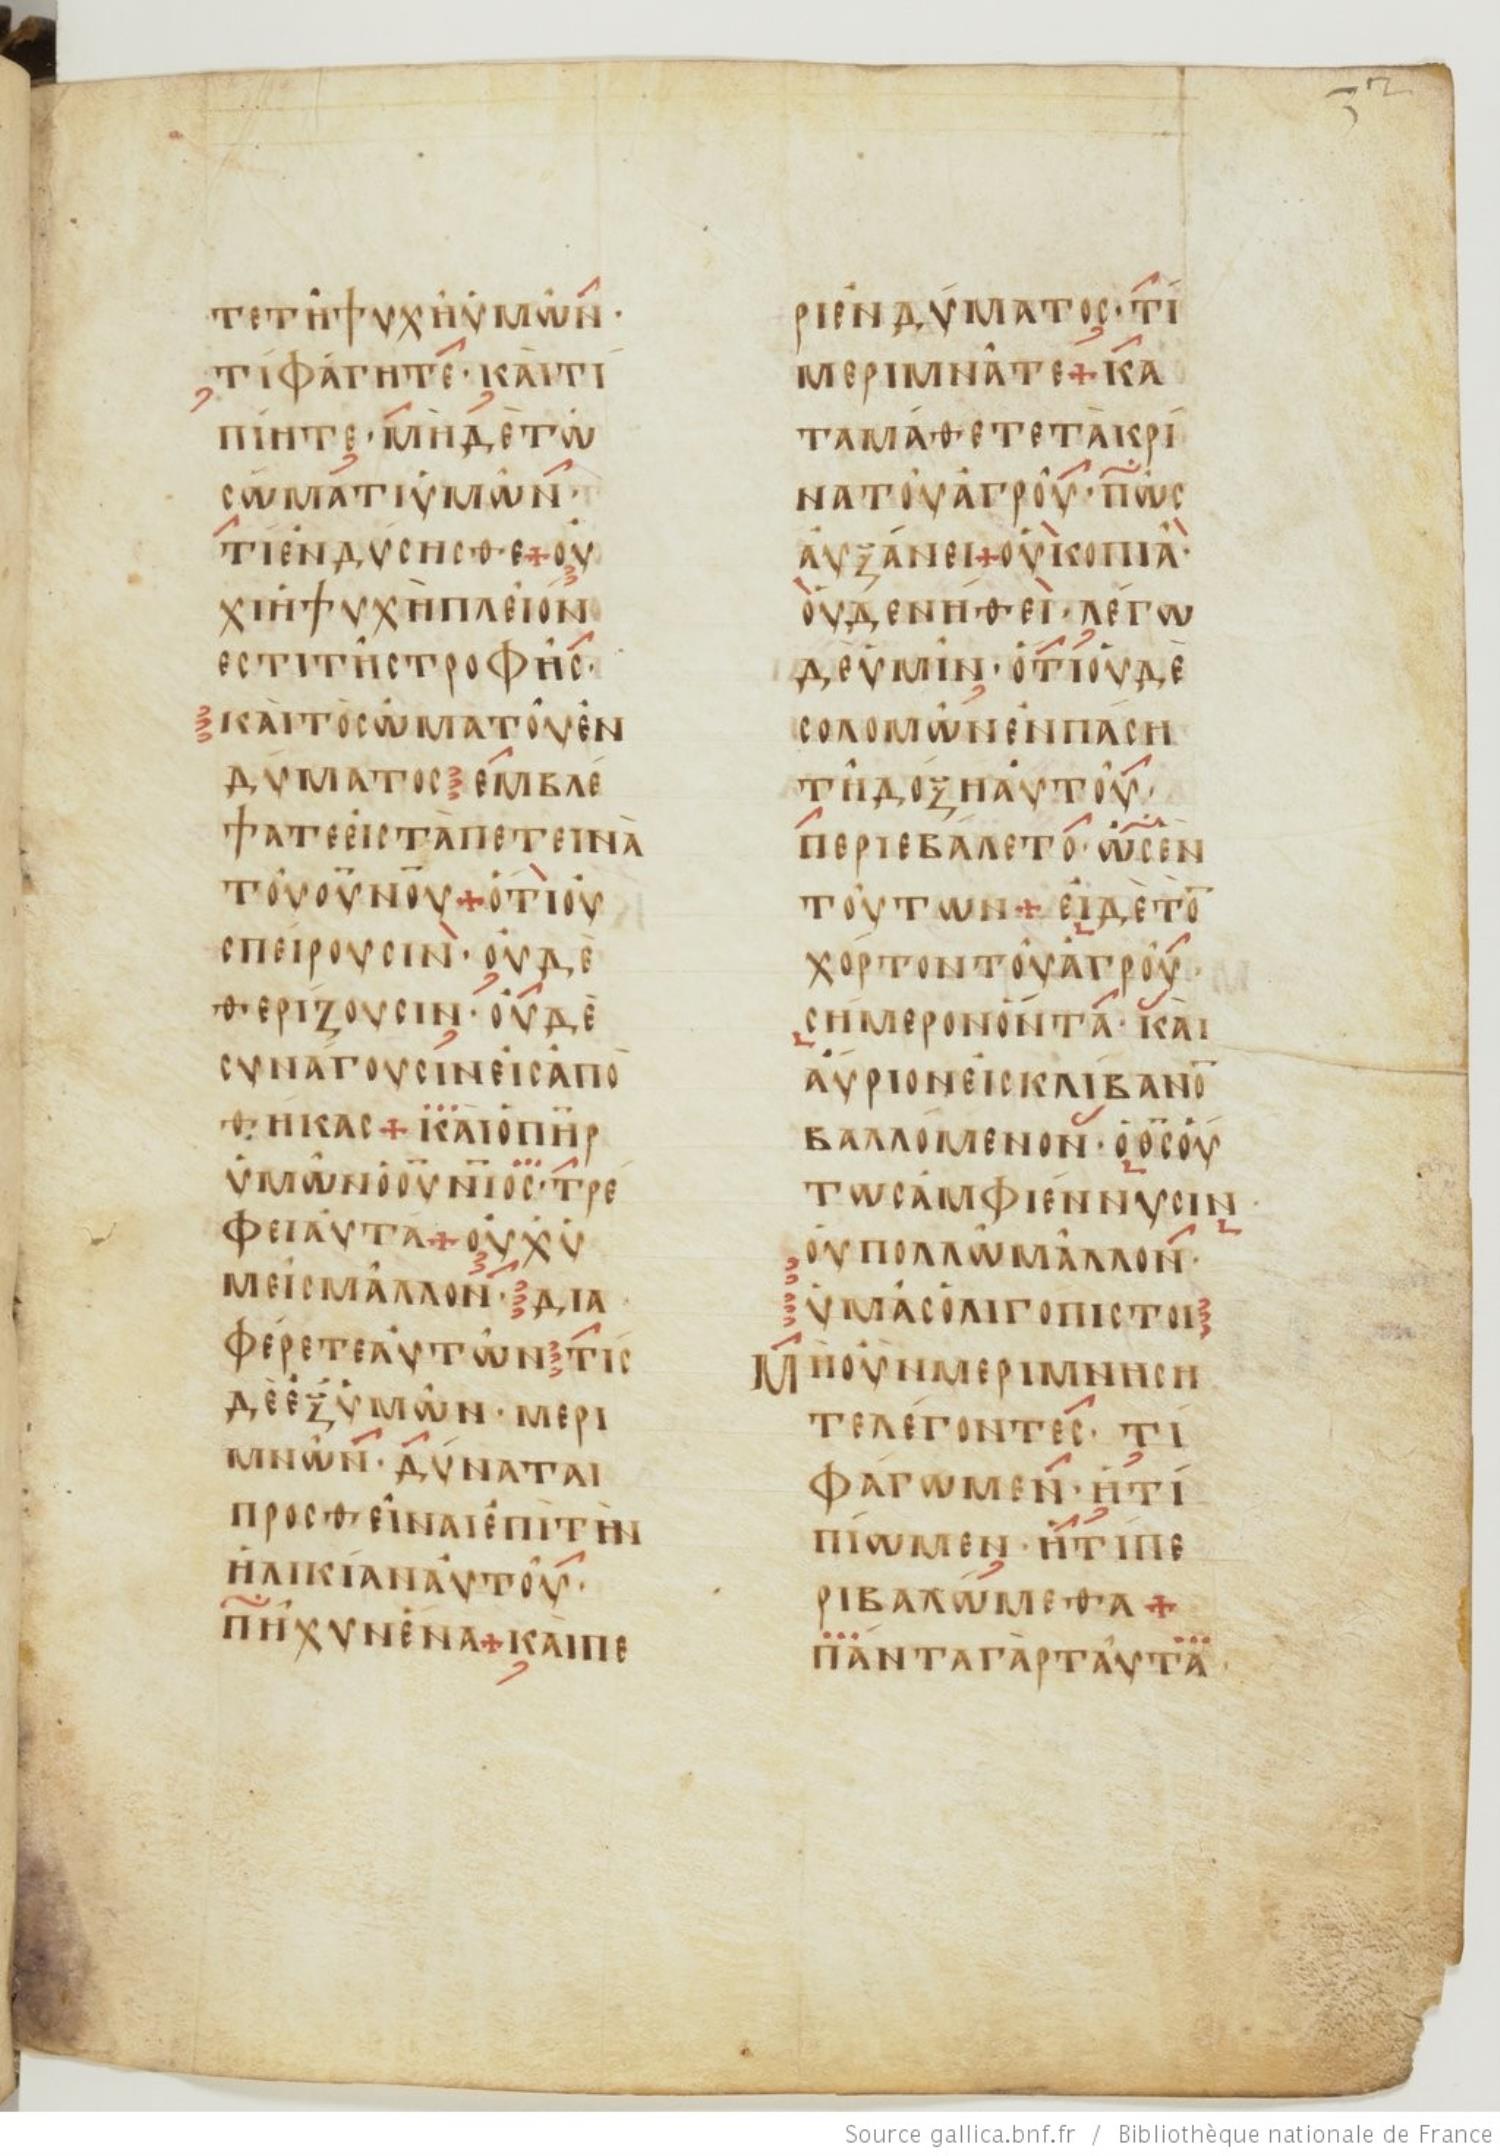 32
τετῆψυχῆὑμῶν·
τίφάγητε·καὶτί
πίητε·μὴδὲτῶ
σώματιὑμῶν·
τίἐνδύσησθε+οὐ
χὶἡψυχὴπλεῖόν
εστιτῆστροφῆς·
καὶτὸσῶματοῦἐν
δύματος ἐμβλέ
ψατεεἰστὰπετεινὰ
τοῦοὐ̅ν̅ο̅υ̅+ὅτιοὐ
σπείρουσιν·οὐδὲ
θερίζουσιν·οὐδὲ
συνάγουσίνεἰσἀπο
θήκας+καὶὁπ̅η̅ρ̅
ὑμῶνὁο̅υ̅ν̅ιος·τρέ
φειαὐτά+οὐχὑ
μεῖσμᾶλλον· δια
φέρετεαὐτῶν τίς
δὲἐξὑμῶν·μερι
μνῶν·δύναται
προσθεῖναιἐπὶτὴν
ἡλικίαναὐτοῦ·
πῆχυνἕνα+καὶπε
ριἐνδύματος·τί
μεριμνᾶτε+κα
ταμάθετετὰκρί
νατοῦἀγροῦ·πῶς
αὐξάνει+οὐκοπιᾶ·
οὐδενήθει·λέγω
δὲὑμῖν·ὅτιοὐδὲ
σολομῶνἐνπάση
τῆδόξηαὐτοῦ·
περιεβάλετο·ὡσἓν
τούτων+εἰδὲτὸ̅
χόρτοντοῦἀγροῦ·
σήμερονὄντα·καὶ
αὔριονεἰσκλίβανο̅
βαλλόμενον·ὁθ̅σ̅οὕ
τωσἀμφιέννυσιν
οὐπολλῶμᾶλλον·
ὑμᾶσὀλιγόπιστοι
Μὴοὖνμεριμνήση
τελέγοντες·τί
φάγωμεν·ἢτί
πίωμεν·ἢτίπε
ριβαλώμεθα+
πάνταγὰρταῦτα
Source gallica.bnf.fr / Bibliothèque nationale de France